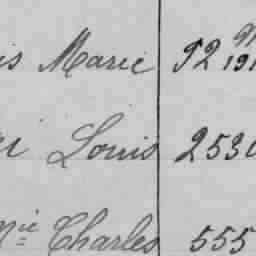 is Marie 52
i Louis 2530
Mie Charles 555